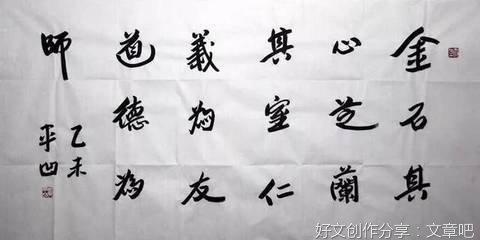 金石其
心芝蘭
其室仁
義為友
道德為
師
乙未
平凹
好文创作分享：文章吧